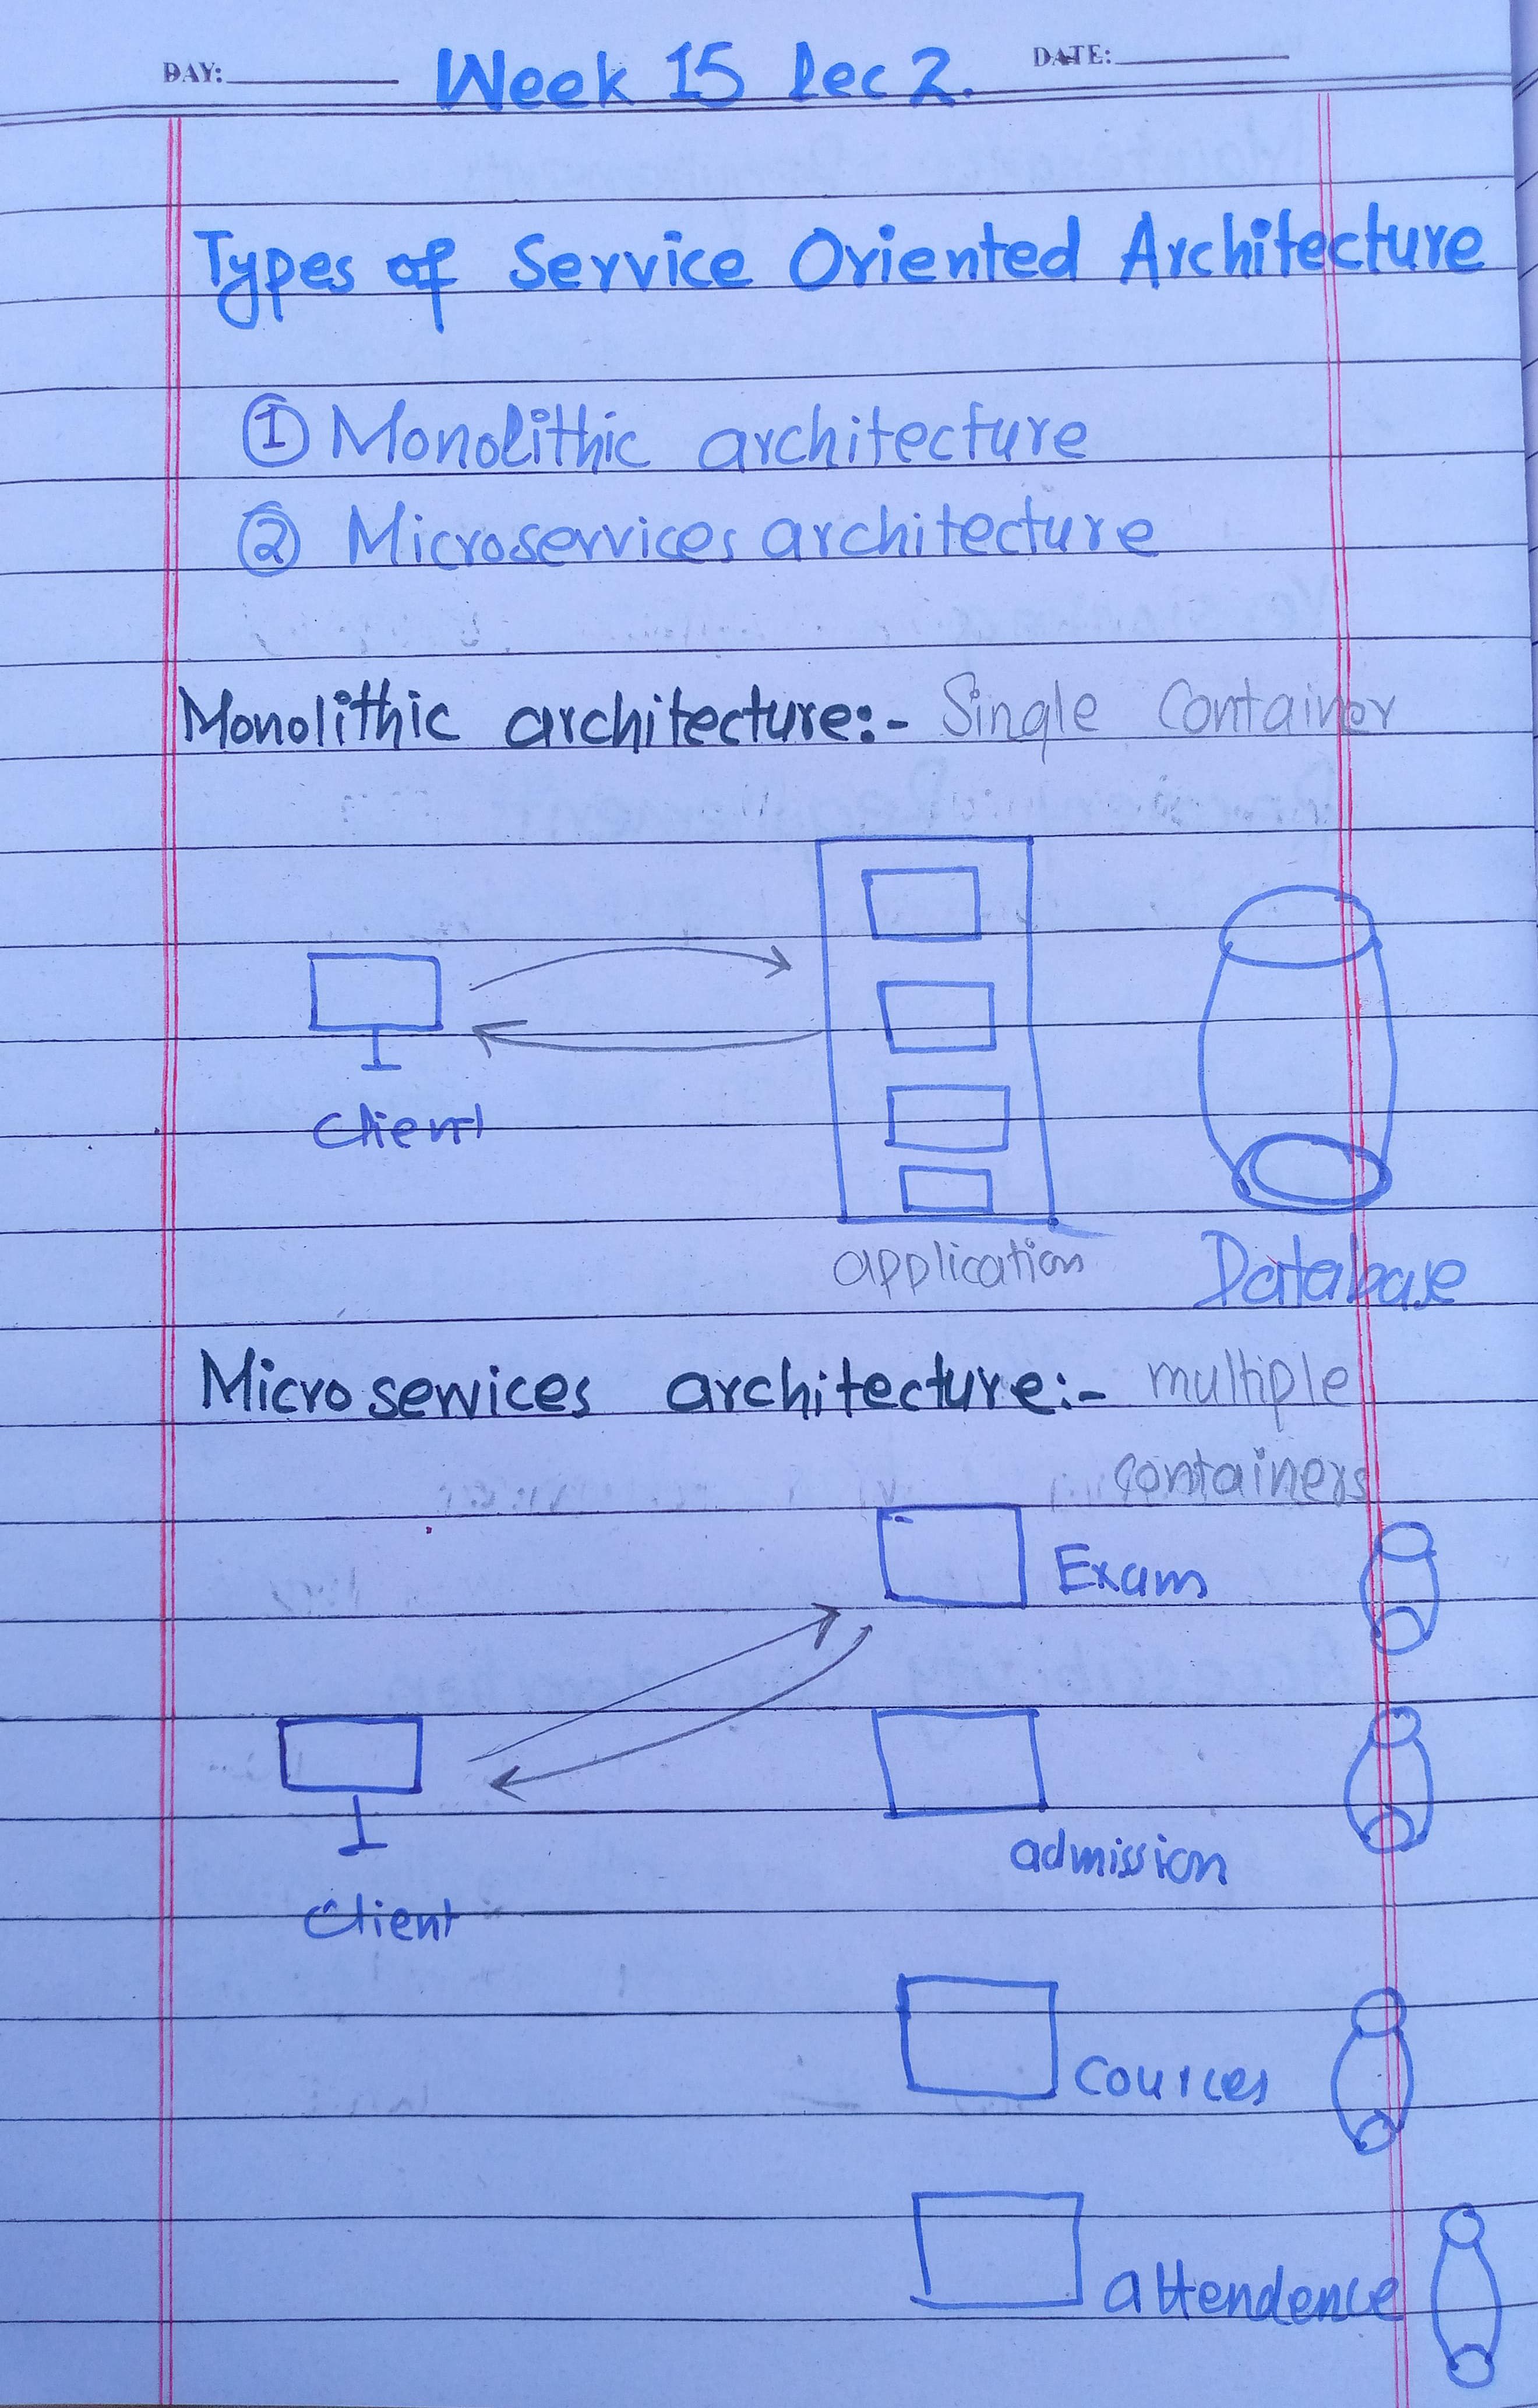 DAY: Week 15 Lec 2. DATE:
Types of Service Oriented Architecture
① Monolithic architecture
② Microservices architecture
Monolithic architecture:- Single Container
Client
application Database
Microservices architecture:- multiple
containers
Exam
admission
Client
Cources
attendence